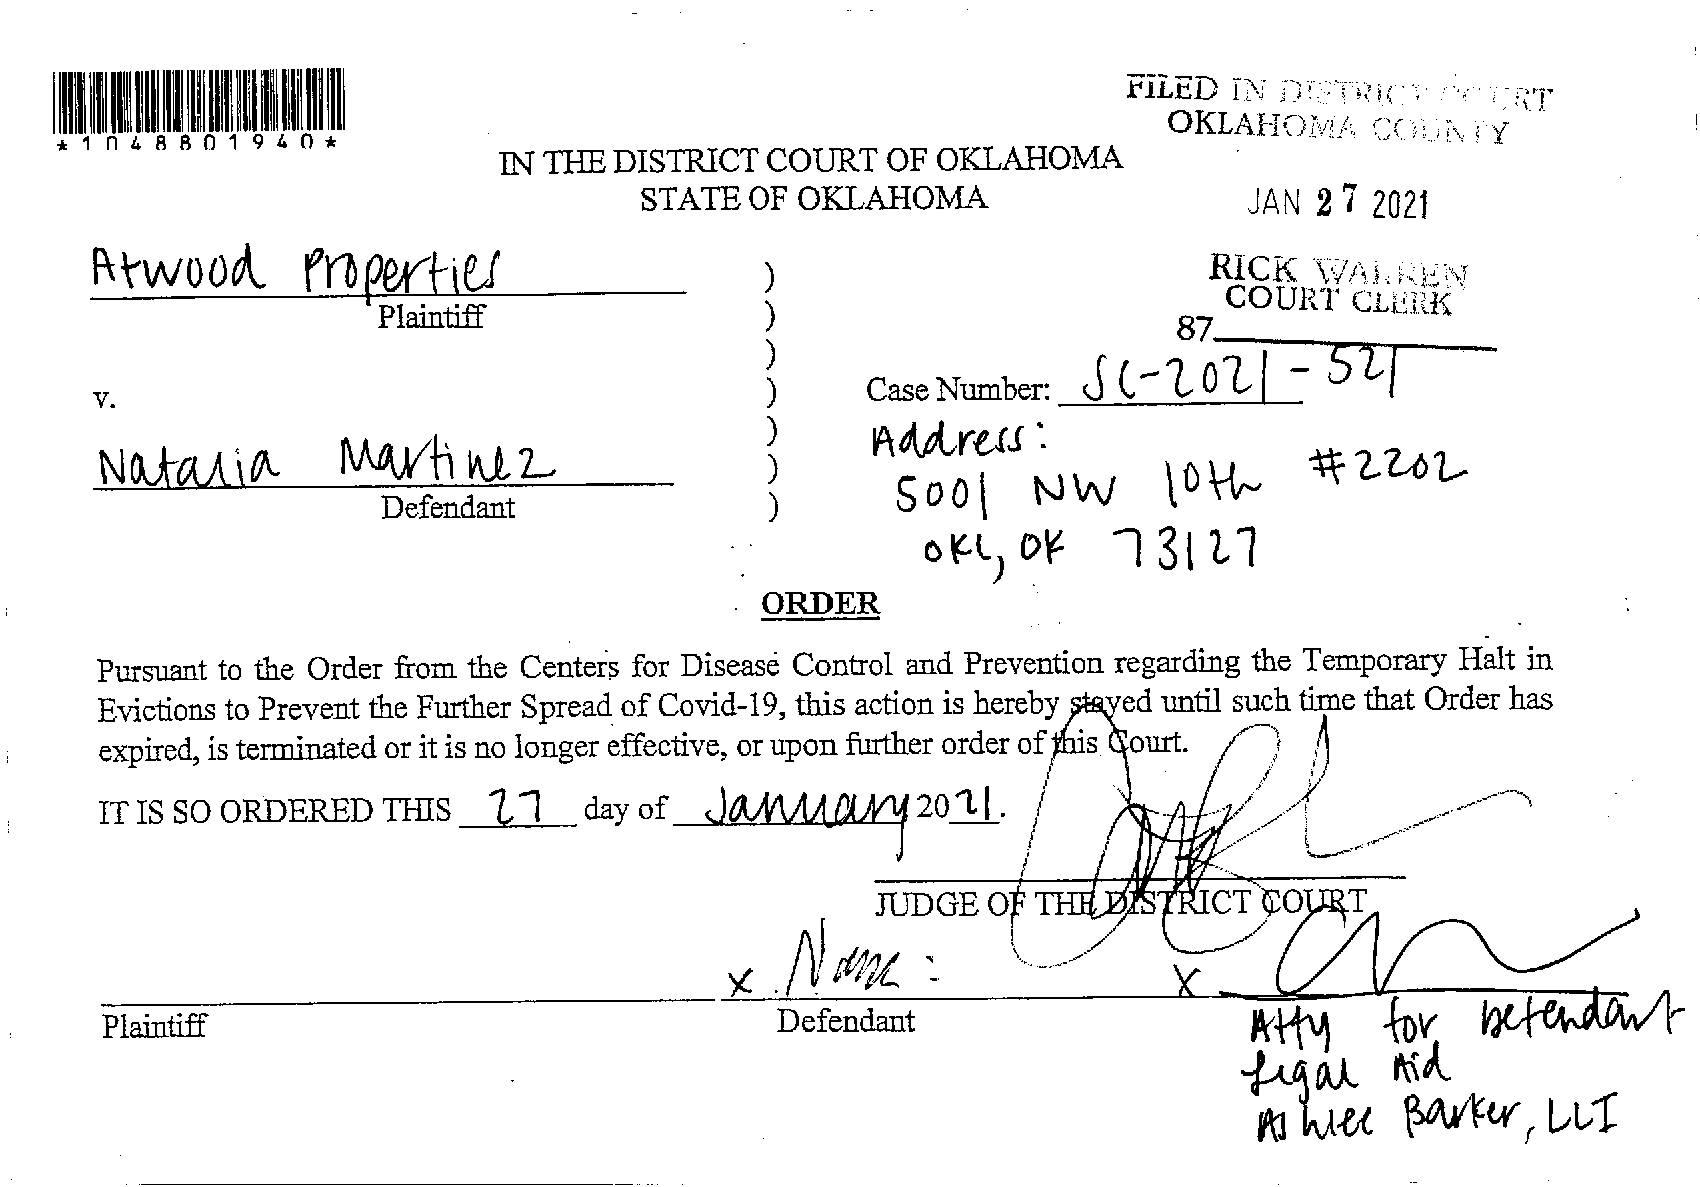 *1048801940*
FILED IN DISTRICT COURT
OKLAHOMA COUNTY
JAN 27 2021
RICK WARREN
COURT CLERK
87
IN THE DISTRICT COURT OF OKLAHOMA
STATE OF OKLAHOMA
Atwood Properties
Plaintiff
v.
Natalia Martinez
Defendant
)
)
)
)
)
)
)
Case Number: SC-2021-521
Address:
5001 NW 10th #2202
OKC, OK 73127
ORDER
Pursuant to the Order from the Centers for Disease Control and Prevention regarding the Temporary Halt in
Evictions to Prevent the Further Spread of Covid-19, this action is hereby stayed until such time that Order has
expired, is terminated or it is no longer effective, or upon further order of this Court.
IT IS SO ORDERED THIS 27 day of January 2021.
JUDGE OF THE DISTRICT COURT
x
x
Plaintiff
Defendant
Atty for Defendant
Legal Aid
Ashlee Barker, LLI